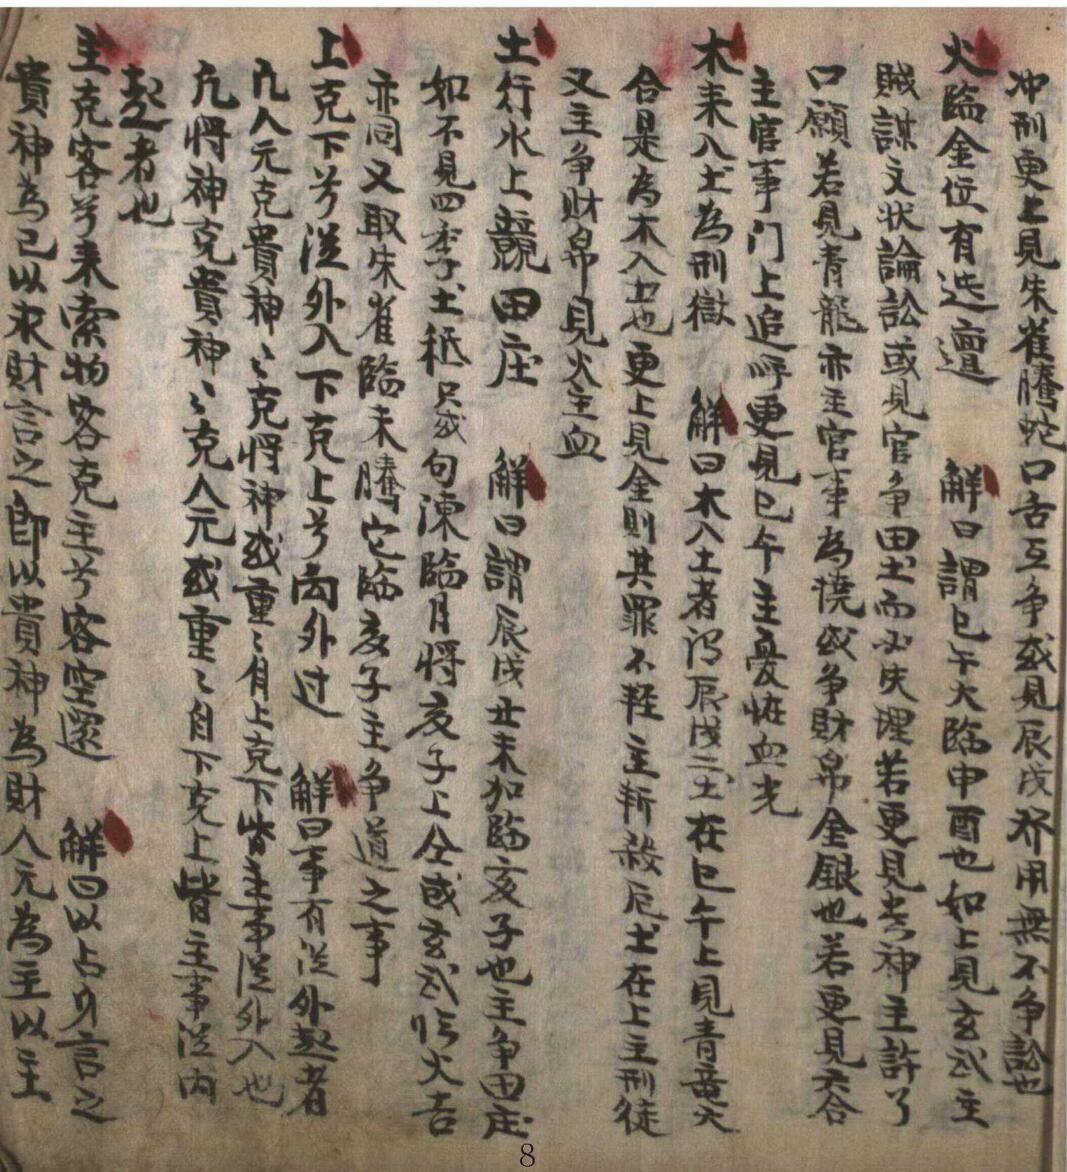 冲刑更上見朱雀騰蛇口舌互争或見辰戌爻用無不争訟也
火臨金位有迍邅 解曰謂巳午火臨申酉也如上見玄武主
賊謀文状論訟或見官争田土而必失理若更見考神主許了
口願若見青龍亦主官事為撓或争財帛金銀也若更見六合
主官事门上追呼更見巳午主憂怪血光
木来入土為刑獄 解曰木入土者乃辰戌二土在巳午上見青竜六
合是為木入土也更上見金則其罪不軽主斬殺厄土在上主刑徒
又主争財帛見火主血
土行水上競田庄 解曰謂辰戌丑未加臨亥子也主争田庄
如不見四季土秪只或句陳臨月将亥子上公或玄武临火吉
亦同又取朱雀臨未騰它临亥子主争道之事
上克下兮從外入下克上兮向外过 解曰事有從外起者
凢人元克貴神〻克将神或重〻自上克下皆主事從外入也
凢将神克貴神〻克人元或重〻自下克上皆主事從内
起者也
主克客兮来索物客克主兮客空還 解曰以占身言之
貴神為己以求財言之即以貴神為財人元為主以主
8